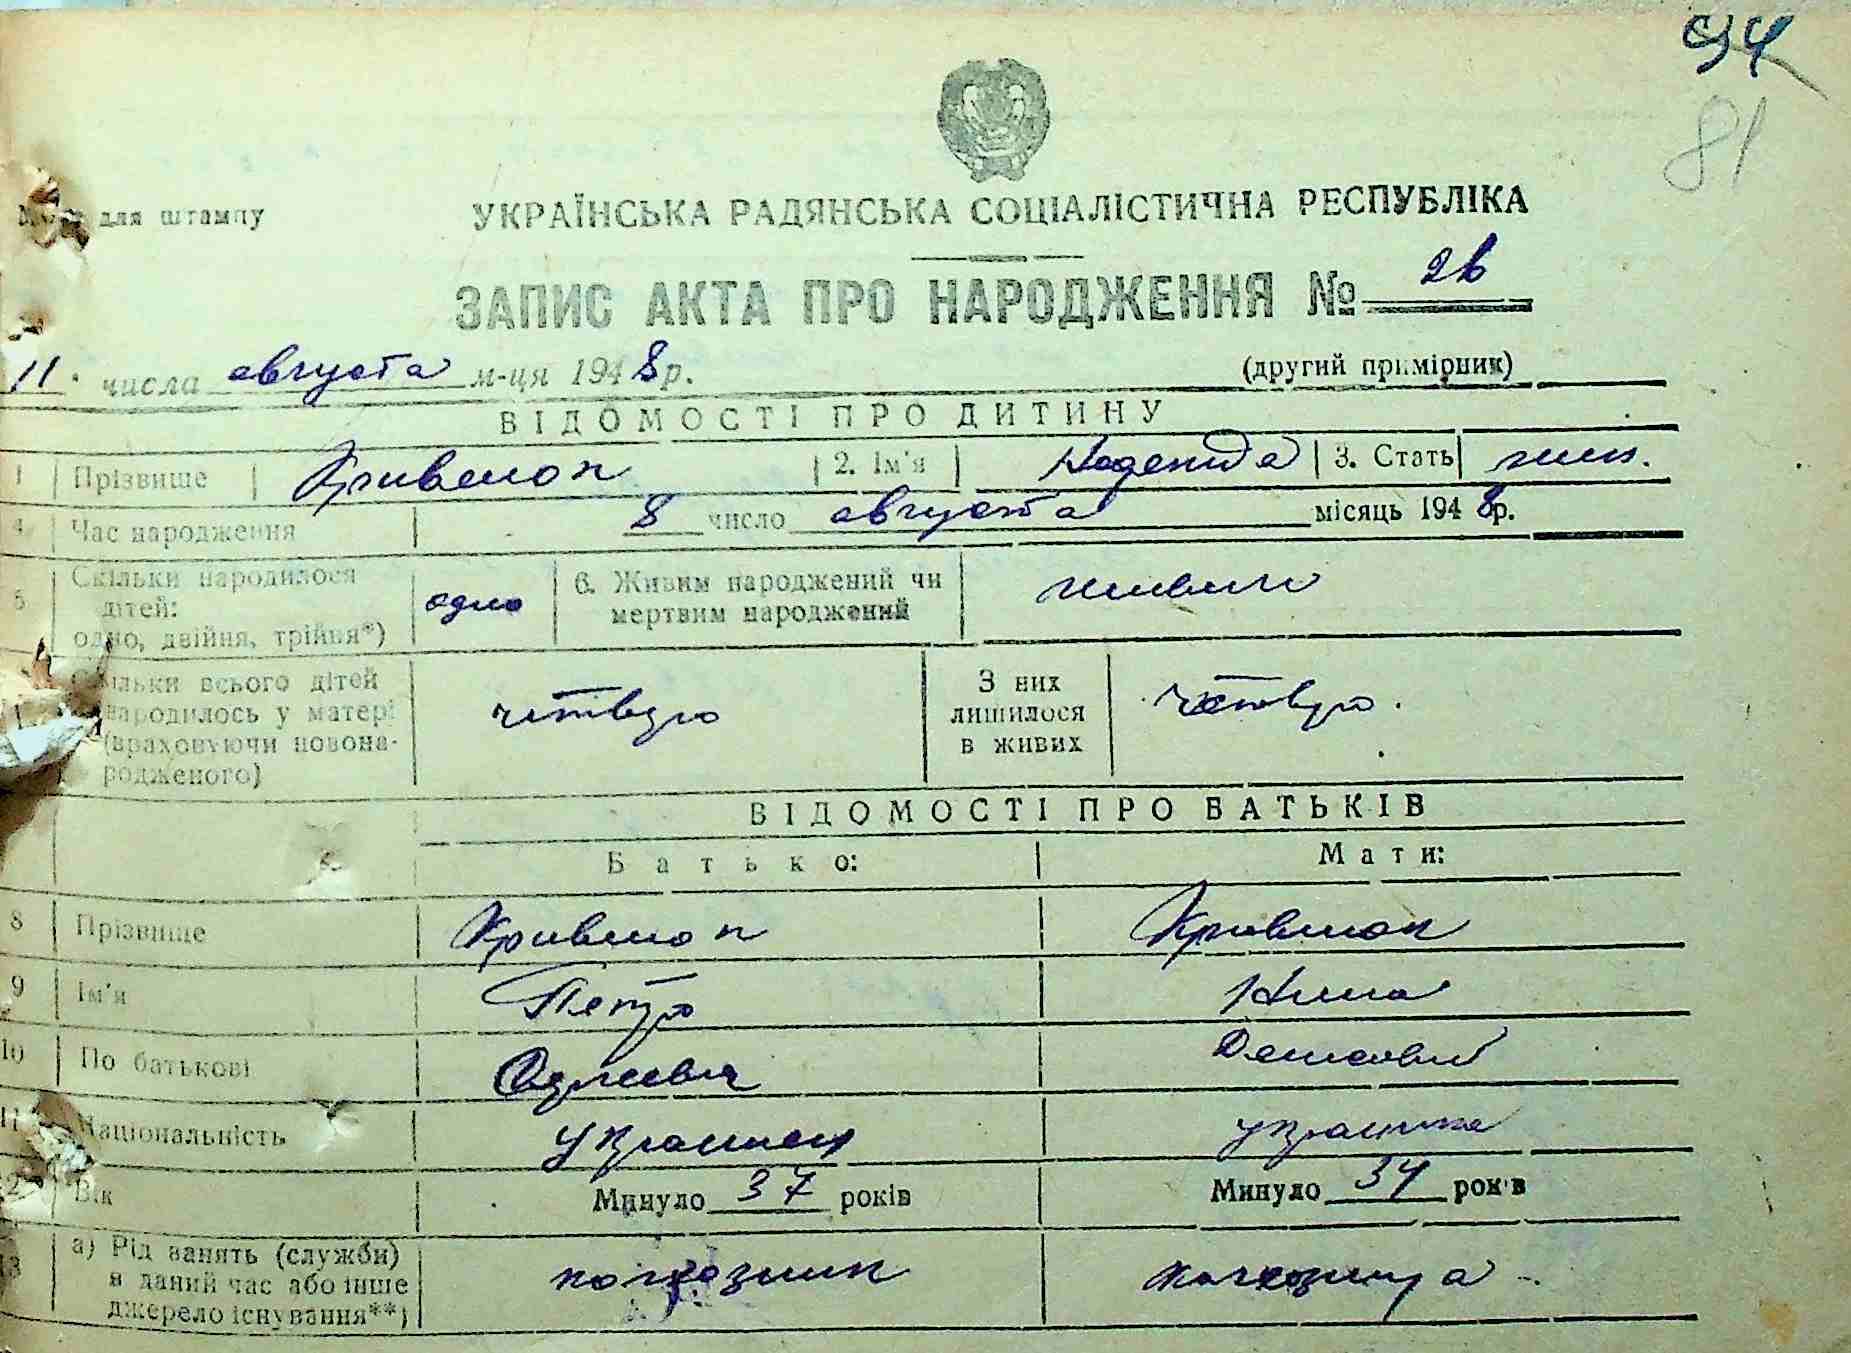 94
81
Місце для штампу
УКРАЇНСЬКА РАДЯНСЬКА СОЦІАЛІСТИЧНА РЕСПУБЛІКА
ЗАПИС АКТА ПРО НАРОДЖЕННЯ № 26
11 числа августа м-ця 1948 р.
(другий примірник)
ВІДОМОСТІ ПРО ДИТИНУ
1 Прізвище Крившоп 2. Ім'я Надежда 3. Стать жин.
4 Час народження 8 число августа місяць 1948 р.
5 Скільки народилося дітей: одно, двійня, трійня*) одно 6. Живим народжений чи мертвим народжений живим
Скільки всього дітей народилось у матері (враховуючи новонародженого) четверо З них лишилося в живих четверо.
ВІДОМОСТІ ПРО БАТЬКІВ
Батько: Мати:
8 Прізвище Крившоп Крившоп
9 Ім'я Петро Нина
10 По батькові
11 Національність украинец украинка
12 Вік Минуло 37 років Минуло 34 років
13 а) Рід занять (служби) в даний час або інше джерело існування**) колхозник колхозница